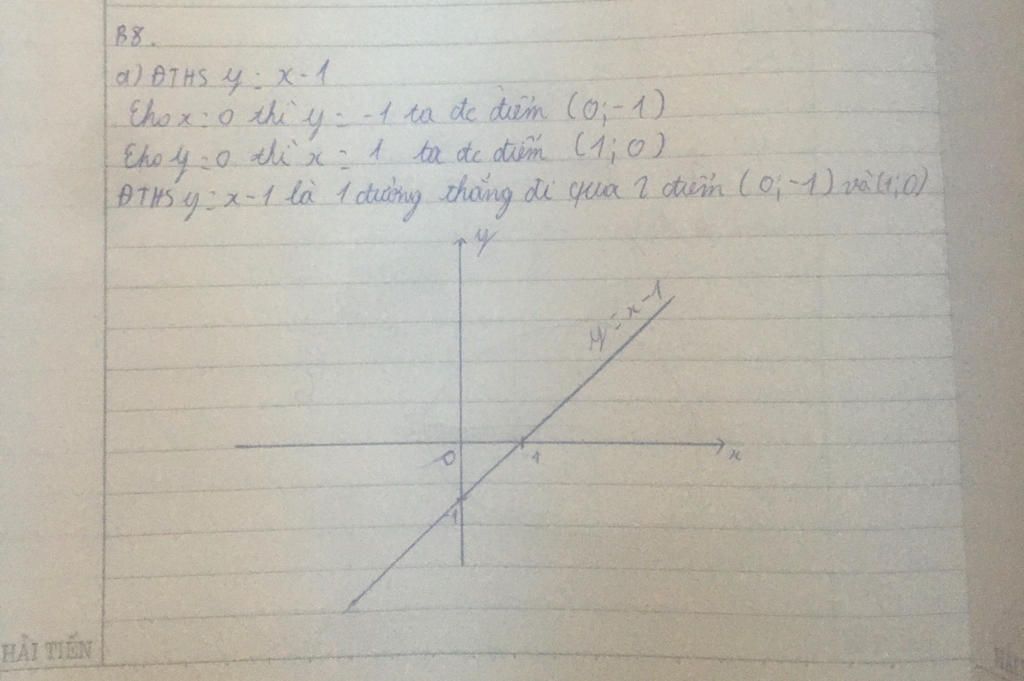 B8.
a) ĐTHS y = x - 1
Cho x = 0 thì y = -1 ta đc điểm (0; -1)
Cho y = 0 thì x = 1 ta đc điểm (1; 0)
ĐTHS y = x - 1 là 1 đường thẳng đi qua 2 điểm (0; -1) và (1; 0)
y
y = x - 1
O
1
x
-1
HẢI TIẾN
HẢI